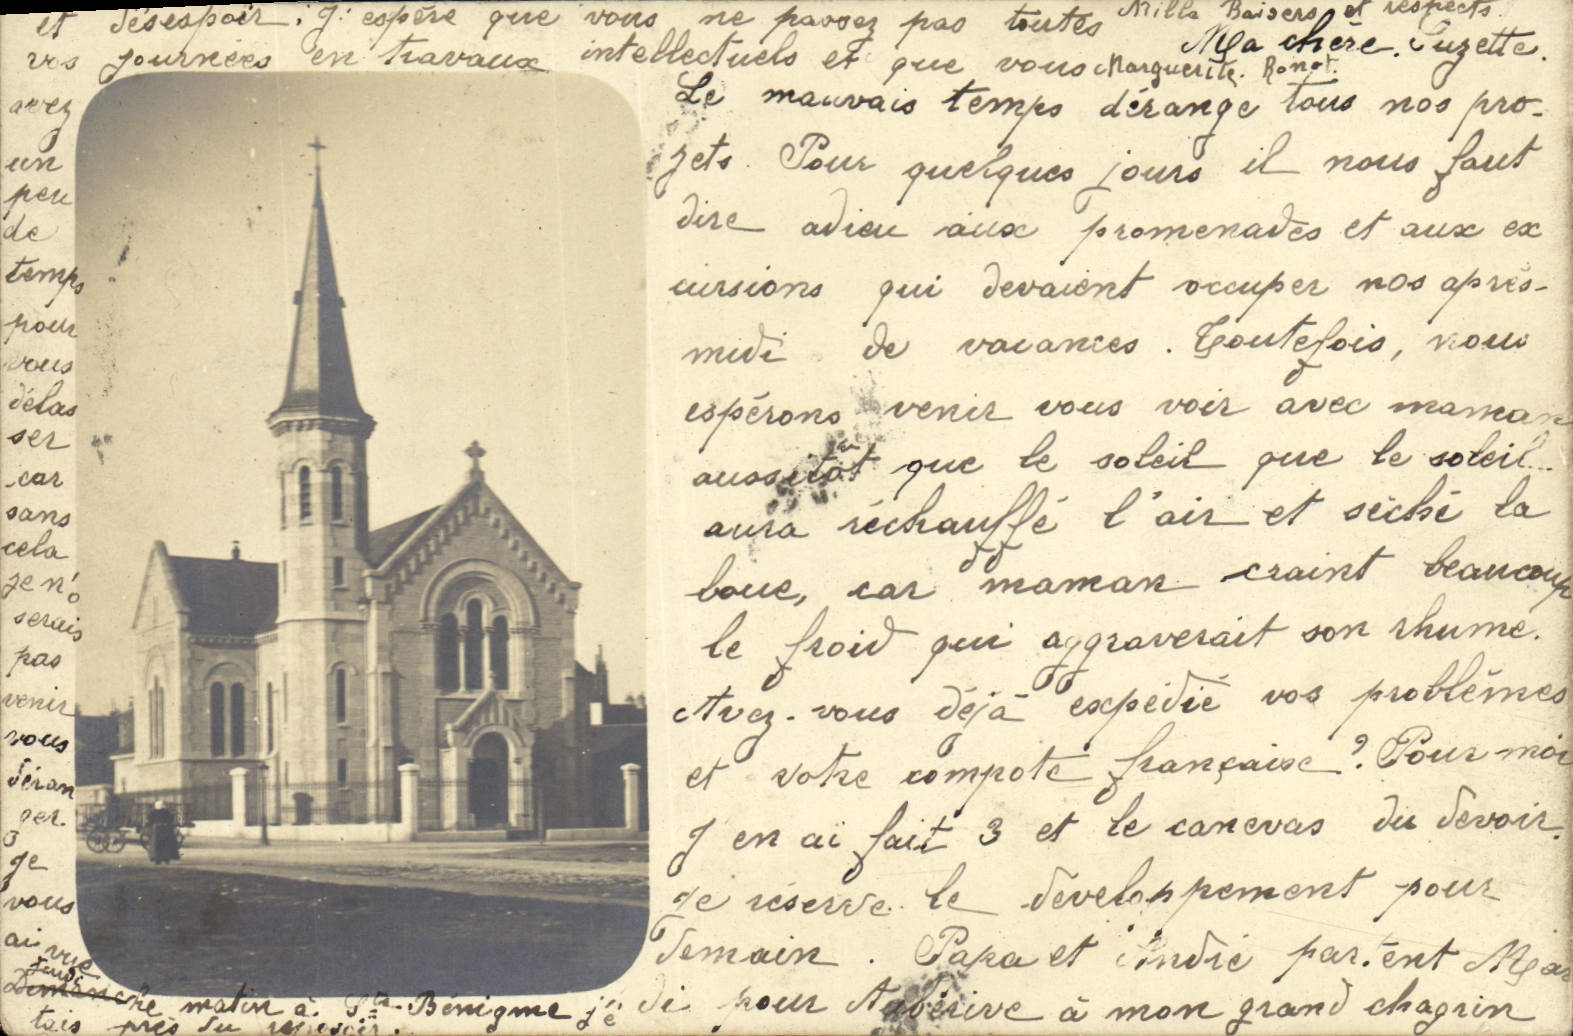 Ma chère Suzette.
Le mauvais temps dérange tous nos pro-
jets. Pour quelques jours il nous faut
dire adieu aux promenades et aux ex
cursions qui devaient occuper nos après-
midi de vacances. Toutefois, nous
espérons venir vous voir avec maman
aussitôt que le soleil que le soleil...
aura réchauffé l'air et séché la
boue, car maman craint beaucoup
le froid qui aggraverait son rhume.
Avez-vous déjà expédié vos problèmes
et votre compote française? Pour moi
j'en ai fait 3 et le canevas du devoir.
je réserve le développement pour
demain. Papa et André partent Mar
di pour Auberive à mon grand chagrin
et désespoir. J'espère que vous ne passez pas toutes
vos journées en travaux intellectuels et que vous
avez
un
peu
de
temps
pour
vous
délas
ser
car
sans
cela
je n'o
serais
pas
venir
vous
déran
ger.
Je
vous
ai vue
jeudi
Dimanche matin à St Bénigne j'é
tais près du reposoir.
Mille Baisers et respects
Marguerite Ronot.